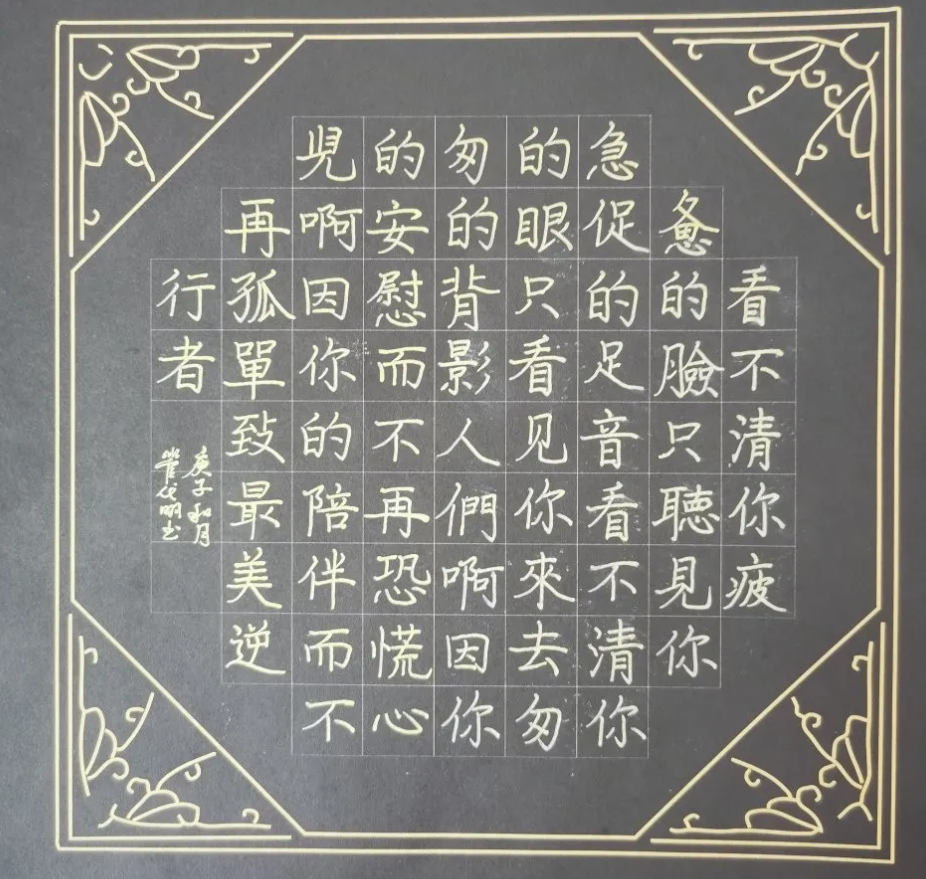 看不清你疲
惫的臉只聽見你
急促的足音看不清你
的眼只看见你來去匆
匆的背影人們啊因你
的安慰而不再恐慌心
兒啊因你的陪伴而不
再孤單致最美逆
行者
庚子和月
管代明书